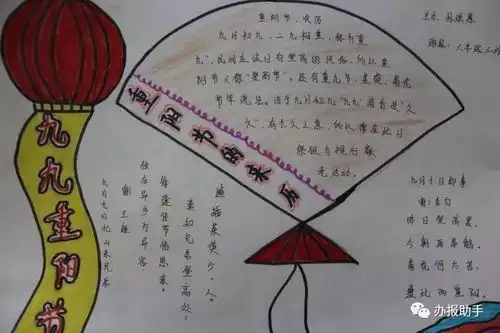 九九重阳节
重阳节的来历
重阳节,农历
九月初九,二九相重,称为重
九",民间在该日有登高的风俗,所以重
阳节又称"登高节"。还有重九节、茱萸、菊花
节等说法。由于九月初九"九九"谐音是"久
久",有长久之意,所以常在此日
祭祖与推行敬
老活动。
九月九日忆山东兄弟
唐 王维
独在异乡为异客
每逢佳节倍思亲。
遥知兄弟登高处,
遍插茱萸少一人。
主办:
班级:六年级三班
九月十日即事
唐:李白
昨日登高罢,
今朝再举觞。
菊花何太苦,
遭此两重阳。
办报助手